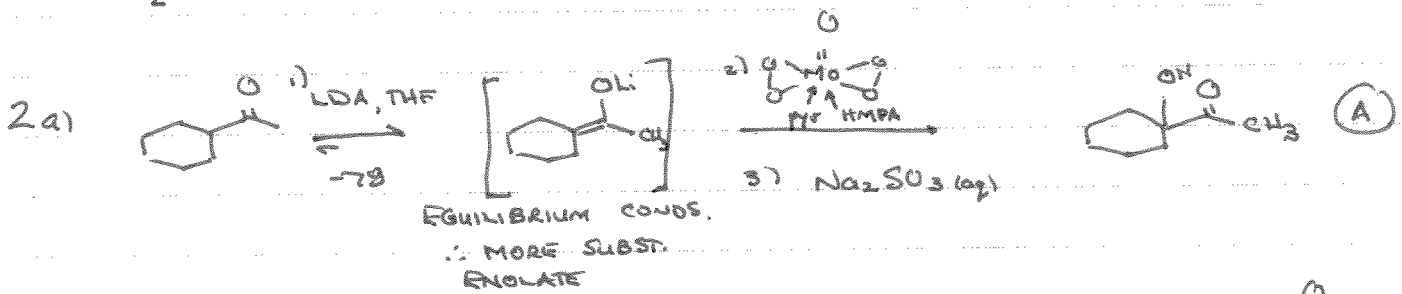 2a)
O
1) LDA, THF
-78
OLi
CH3
EQUILIBRIUM CONDS.
∴ MORE SUBST.
ENOLATE
2) O
O Mo O
O O
pyr HMPA
3) Na2SO3 (aq)
OH O
CH3
A